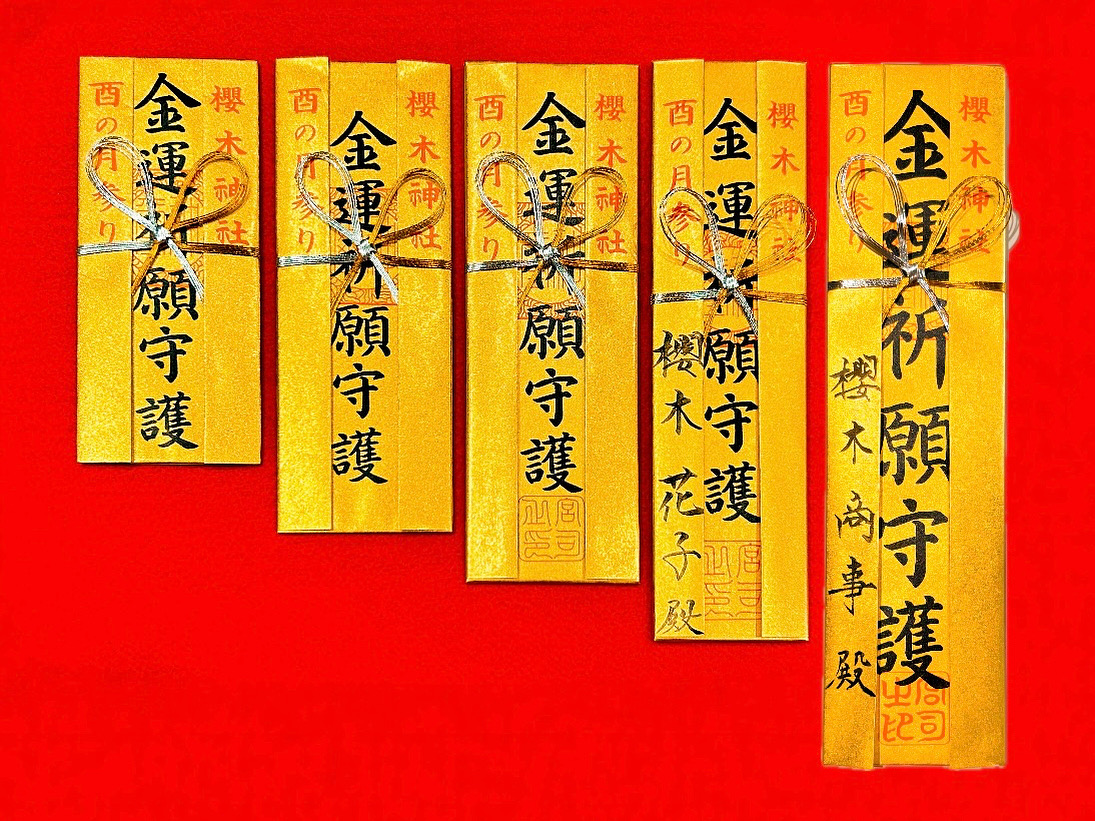 櫻木神社
金運祈願守護
酉の月参り
櫻木神社
金運祈願守護
酉の月参り
櫻木神社
金運祈願守護
宮司之印
酉の月参り
櫻木神社
金運祈願守護
宮司之印
酉の月参り
櫻木花子殿
櫻木神社
金運祈願守護
宮司之印
酉の月参り
櫻木商事殿